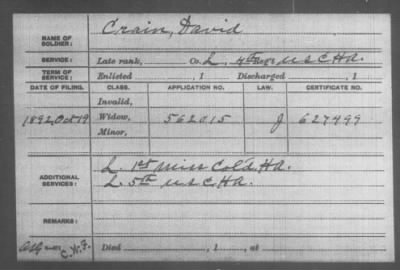 NAME OF SOLDIER: Crain, David
SERVICE: Late rank, Co. L, 4th Reg't U S C H A.
TERM OF SERVICE: Enlisted , 1 Discharged , 1
DATE OF FILING. CLASS. APPLICATION NO. LAW. CERTIFICATE NO.
Invalid,
1892, Oct 19 Widow, 562015 J 627499
Minor,
ADDITIONAL SERVICES: L. 1st Miss Col'd H.A.
L. 5th U S C. H A.
REMARKS:
C.W.F. Died , 1 , at